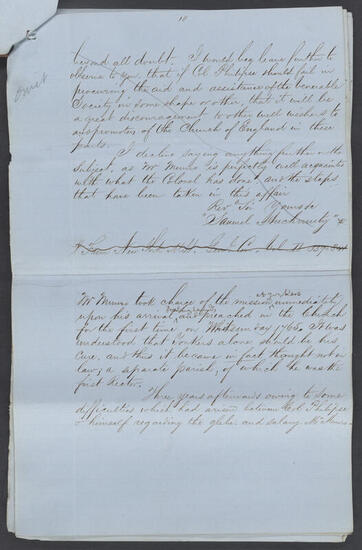 10
Omit
beyond all doubt. I would beg leave further to
observe to you, that if Col. Philipse should fail in
procuring the aid and assistance of the venerable
Society in some shape or other, that it will be
a great discouragement to other well wishers to
and promoters of the Church of England in these
parts.
I decline saying any thing further on the
subject, as Mr Munro is perfectly well acquainted
with what the Colonel has done and the steps
that have been taken in this affair
Revd Sir Yours &c
"Samuel Auchmuty"
Mr Munro took charge of the mission immediately
upon his arrival, and preached in the Church
for the first time, on Whitsunday 1765. It was
understood that Yonkers alone should be his
Cure, and thus it became in fact though not in
law, a separate parish, of which he was the
first Rector.
Three years afterwards owing to some
difficulties which had arisen between Col. Philipse
& himself regarding the glebe and salary Mr Munro